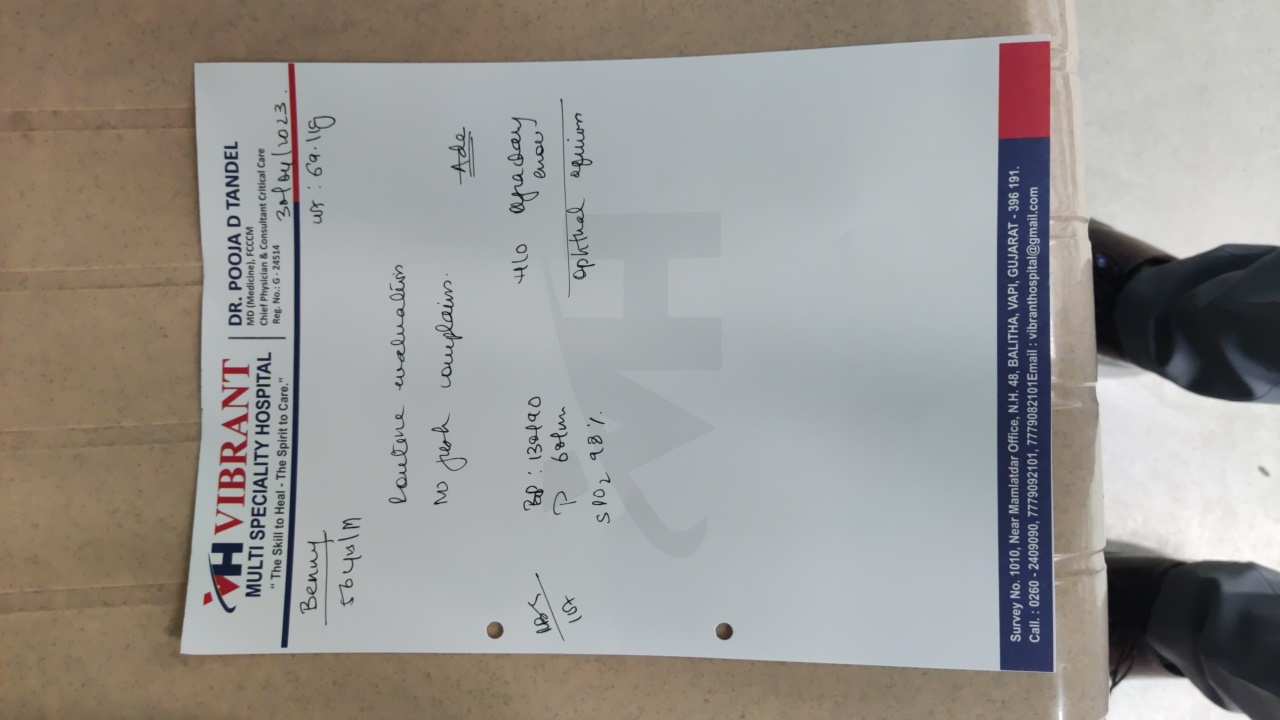 VH VIBRANT
MULTI SPECIALITY HOSPITAL
“ The Skill to Heal - The Spirit to Care.”
DR. POOJA D TANDEL
MD (Medicine), FCCCM
Chief Physician & Consultant Critical Care
Reg. No.: G - 24514
30/04/2023.
Benny
wt : 69.1kg
56 yrs/M
Routine evaluation
No fresh complains.
Adv
BP : 130/90
H/O refractory
error
RBS
107
P 68/min
SPO2 98%.
Ophthal opinion
VH
Survey No. 1010, Near Mamlatdar Office, N.H. 48, BALITHA, VAPI, GUJARAT - 396 191.
Call. : 0260 - 2409090, 7779092101, 7779082101Email : vibranthospital@gmail.com